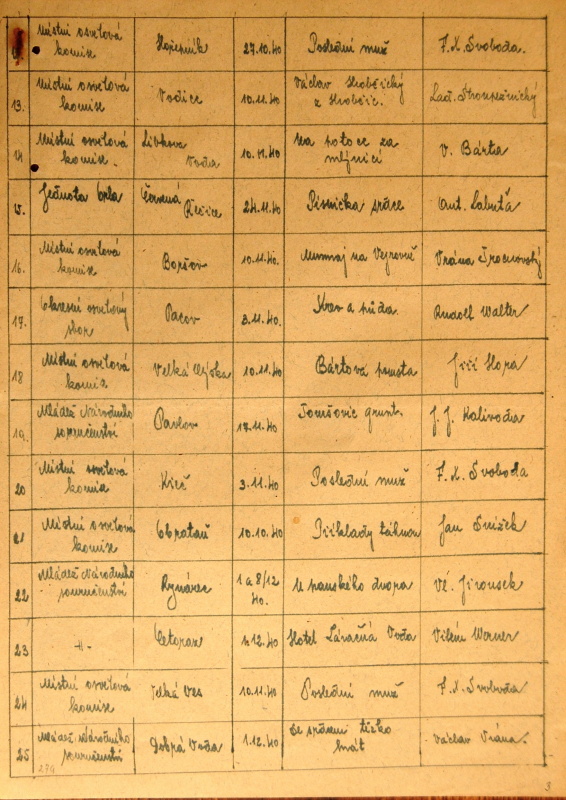 Místní osvětová komise Hořepník 27.10.40 Poslední muž F.X. Svoboda.
13. Místní osvětová komise Vodice 10.11.40 Václav Hrobčický z Hrobčic. Lad. Stroupežnický
14 Místní osvětová komise. Libkova Voda 10.11.40 Na potoce za mlýnicí V. Bárta
15. Jednota Orla Červená Řečice 24.11.40 Písnička práce Ant. Labuťa
16. Místní osvětová komise Boršov 10.11.40. na Vejrovně Vrána Trocnovský
17. Okresní osvětový sbor Pacov 3.11.40. Krev a půda. Rudolf Walter
18 Místní osvětová komise Velká 10.11.40 Bártova pomsta Jiří Hora
19. Mládež Národního souručenství Pavlov 17.11.40 grunt. J. J. Kalivoda
20 Místní osvětová komise Křeč 3.11.40 Poslední muž F.X. Svoboda
21 Místní osvětová komise Obrataň 10.10.40 Příklady táhnou Jan Snížek
22 Mládež Národního souručenství Rynárec 1 a 8/12 40. U panského dvora Vč. Jirousek
23 -"- Cetoraz 12.40 Hotel Lázeňská Voda Vilém Werner
24 Místní osvětová komise Velká Ves 10.11.40 Poslední muž F.X. Svoboda
25 Mládež Národního souručenství Dobrá Voda 1.12.40 Se srdcem těžko hrát Václav Vrána.
274
3